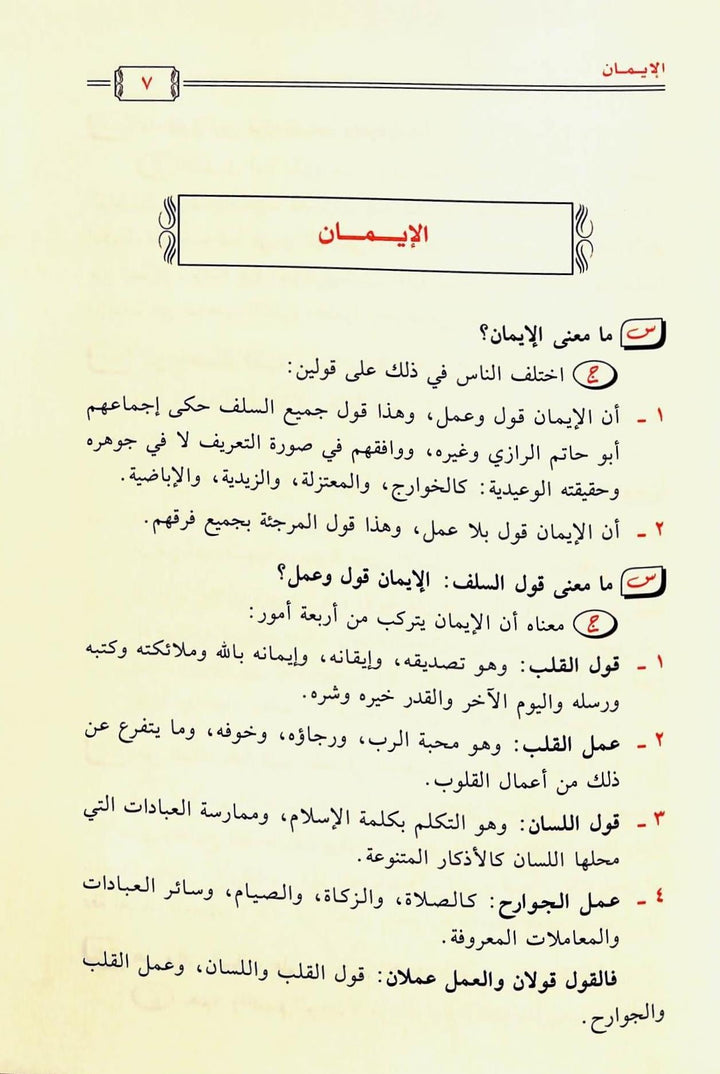 الإيمان
٧
الإيمان
س ما معنى الإيمان؟
ج اختلف الناس في ذلك على قولين:
١ - أن الإيمان قول وعمل، وهذا قول جميع السلف حكى إجماعهم
أبو حاتم الرازي وغيره، ووافقهم في صورة التعريف لا في جوهره
وحقيقته الوعيدية: كالخوارج، والمعتزلة، والزيدية، والإباضية.
٢ - أن الإيمان قول بلا عمل، وهذا قول المرجئة بجميع فرقهم.
س ما معنى قول السلف: الإيمان قول وعمل؟
ج معناه أن الإيمان يتركب من أربعة أمور:
١ - قول القلب: وهو تصديقه، وإيقانه، وإيمانه بالله وملائكته وكتبه
ورسله واليوم الآخر والقدر خيره وشره.
٢ - عمل القلب: وهو محبة الرب، ورجاؤه، وخوفه، وما يتفرع عن
ذلك من أعمال القلوب.
٣ - قول اللسان: وهو التكلم بكلمة الإسلام، وممارسة العبادات التي
محلها اللسان كالأذكار المتنوعة.
٤ - عمل الجوارح: كالصلاة، والزكاة، والصيام، وسائر العبادات
والمعاملات المعروفة.
فالقول قولان والعمل عملان: قول القلب واللسان، وعمل القلب
والجوارح.